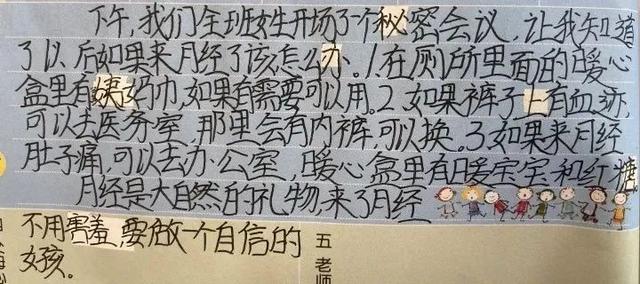 下午,我们全班女生开场了个秘密会议,让我知道
了以后如果来月经了该怎么办。1在厕所里面的暖心
盒里有姨妈巾,如果有需要可以用。2如果裤子上有血迹,
可以去医务室,那里会有内裤,可以换。3如果来月经
肚子痛,可以去办公室,暖心盒里有暖宝宝和红糖
月经是大自然的礼物,来了月经
不用害羞,要做一个自信的
女孩。
五 老师